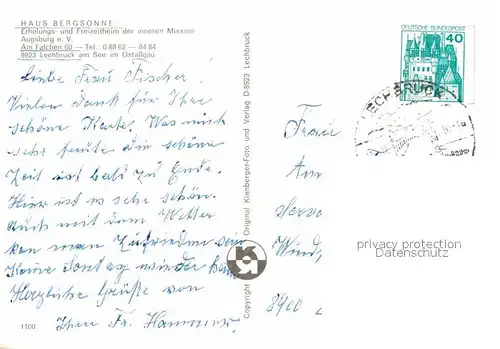 HAUS BERGSONNE
Erholungs- und Freizeitheim der inneren Mission
Augsburg e. V.
Am Falchen 60 — Tel.: 0 88 62 — 84 84
8923 Lechbruck am See im Ostallgäu
Liebe Frau Fischer!
Vielen Dank für Ihre
schöne Karte. Was mich
sehr freute die schöne
Zeit ist bald zu Ende.
Hier ist es sehr schön.
Auch mit dem Wetter
kan man Zufrieden sein
Keine Sontag wieder
Herzliche Grüße von
Ihre Fr. Hammer
1100
Copyright Original Kienberger-Foto und Verlag D-8923 Lechbruck
DEUTSCHE BUNDESPOST
40
LECHBRUCK
Frau
Am
8900
privacy protection
Datenschutz